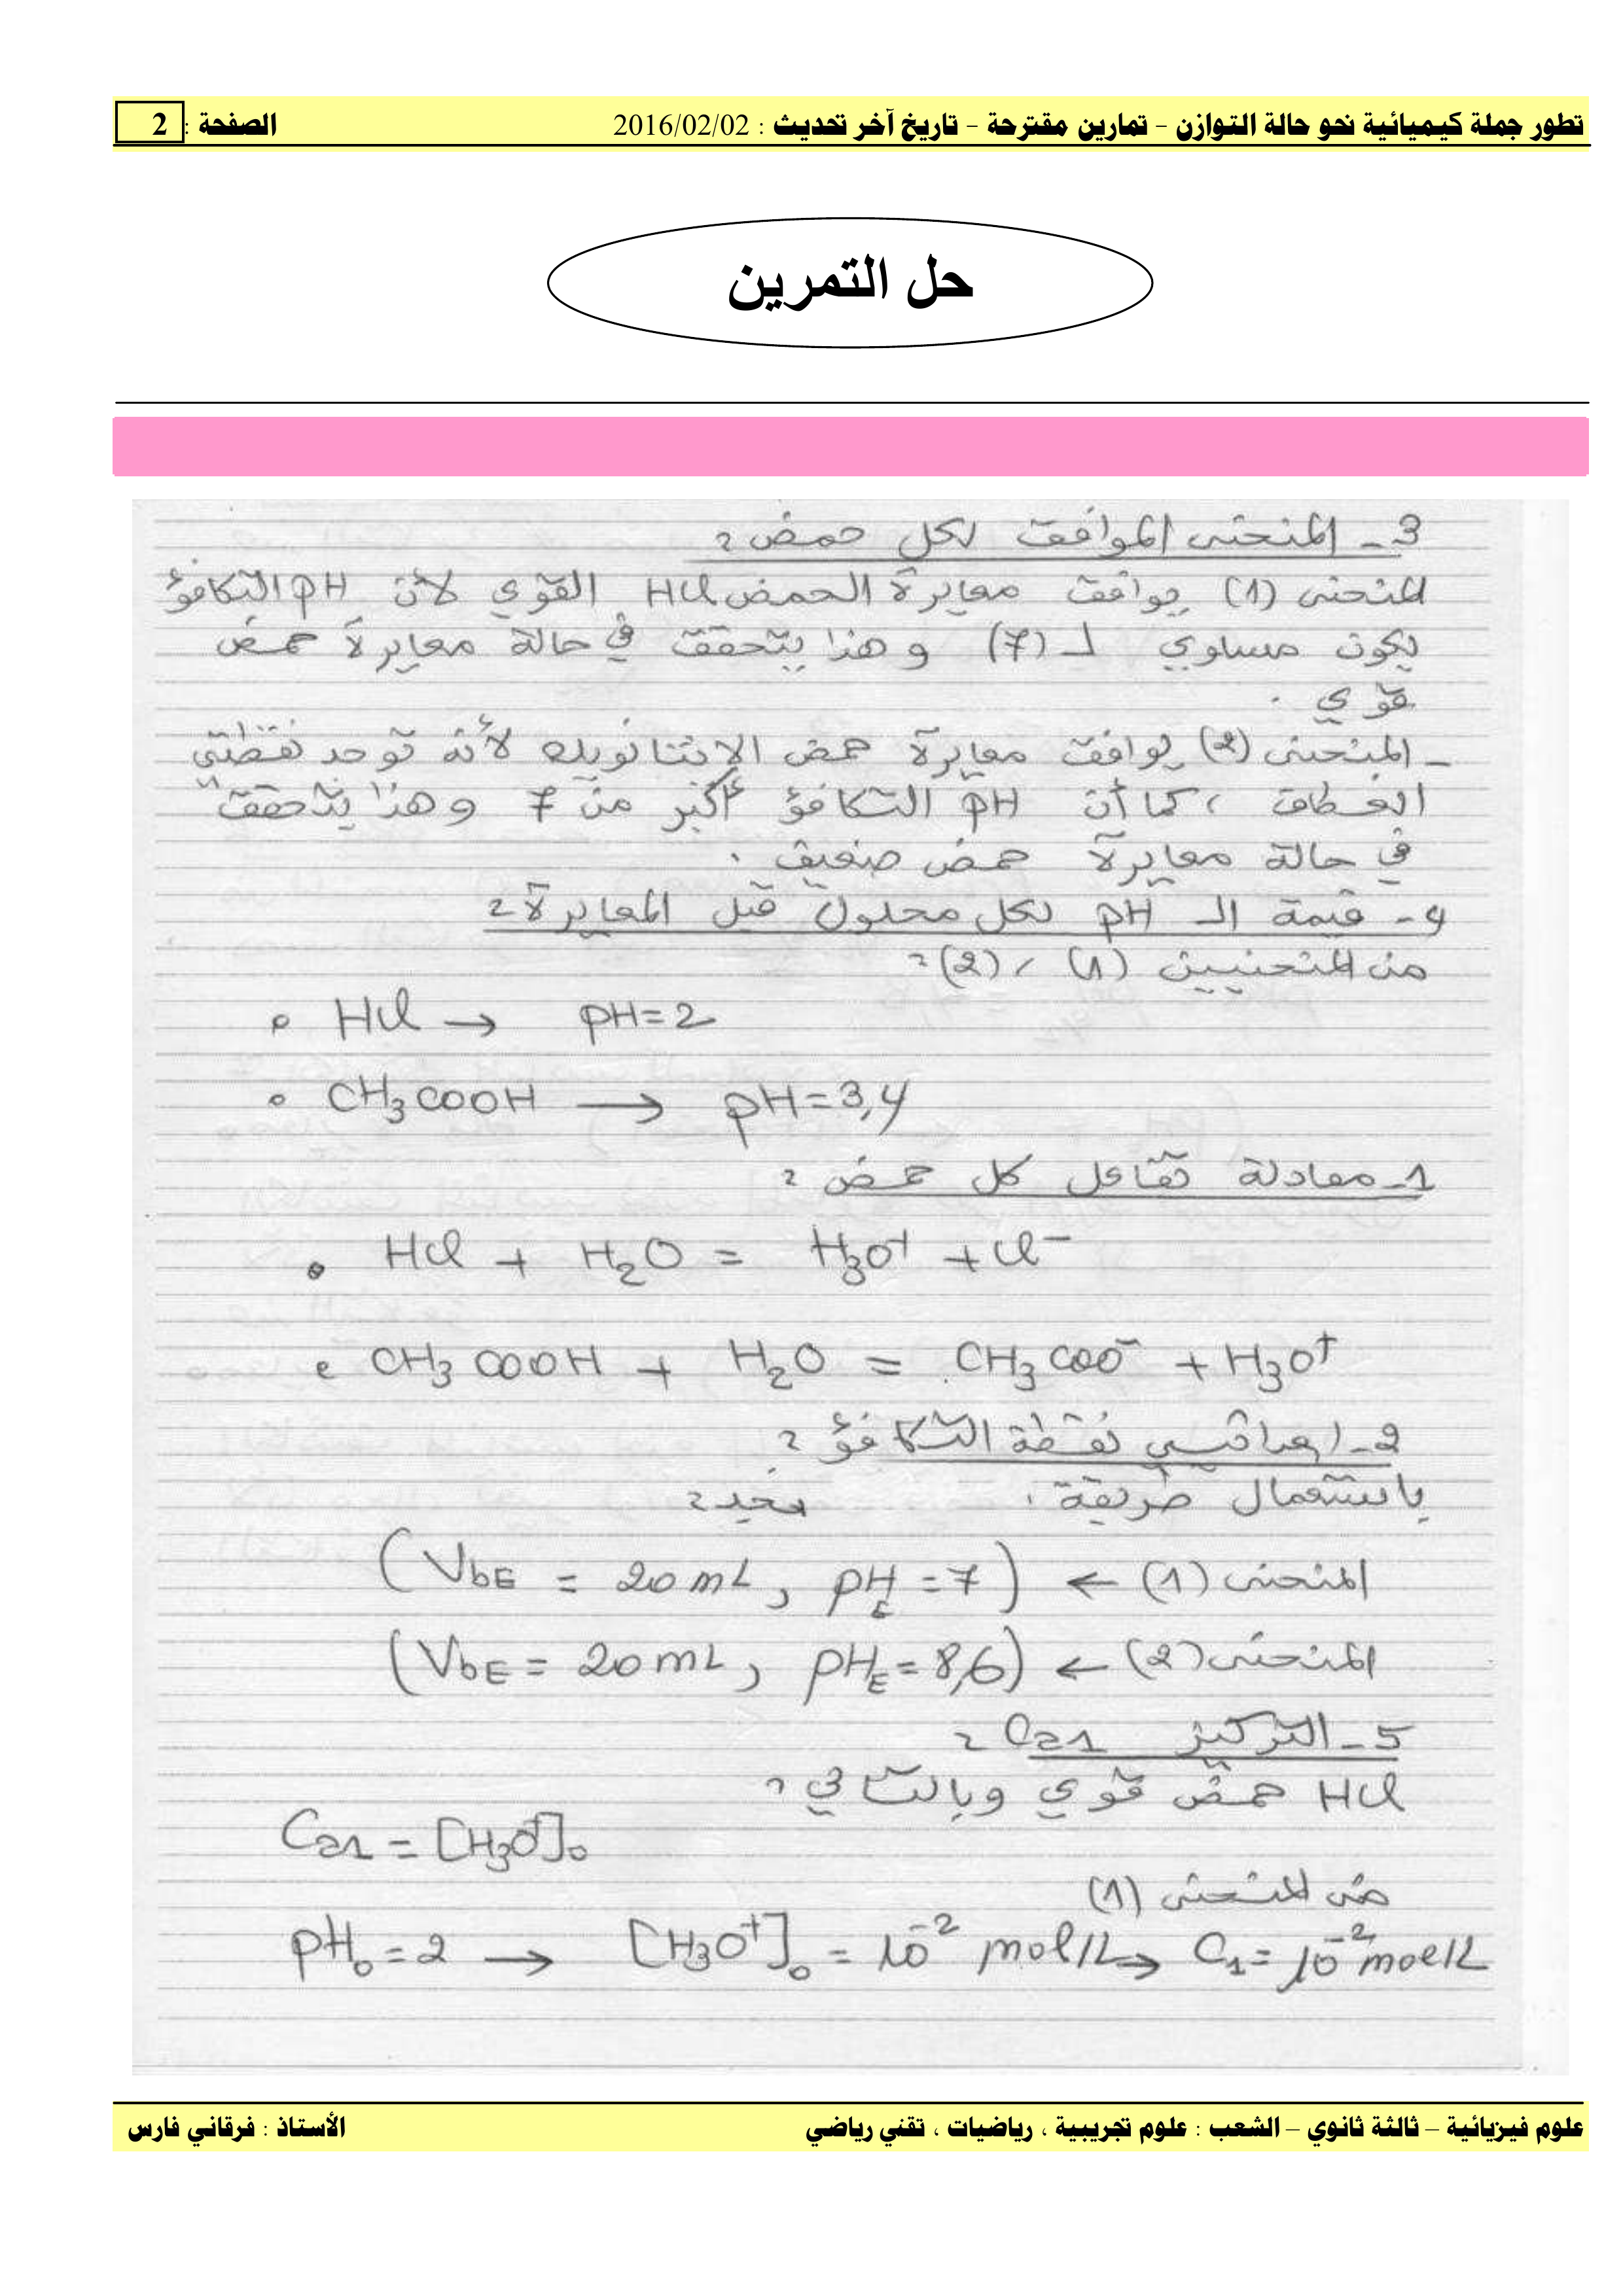 تطور جملة كيميائية نحو حالة التوازن – تمارين مقترحة – تاريخ آخر تحديث : 2016/02/02 الصفحة : 2
حل التمرين
3- المنحنى الموافق لكل حمض :
المنحنى (1) يوافق معايرة الحمض HCl القوي لأن pH التكافؤ
يكون مساوي لـ (7) و هذا يتحقق في حالة معايرة حمض
قوي .
- المنحنى (2) يوافق معايرة حمض الإيثانويك لأنه توجد نقطتي
انعطاف ، كما أن pH التكافؤ أكبر من 7 و هذا يتحقق
في حالة معايرة حمض ضعيف .
4- قيمة الـ pH لكل محلول قبل المعايرة :
من المنحنيين (1) ، (2) :
• HCl → pH = 2
• CH₃COOH → pH = 3,4
1- معادلة تفاعل كل حمض :
• HCl + H₂O = H₃O⁺ + Cl⁻
• CH₃COOH + H₂O = CH₃COO⁻ + H₃O⁺
2- إحداثيي نقطة التكافؤ :
باستعمال طريقة نجد :
المنحنى (1) ← (VbE = 20 mL , pHE = 7)
المنحنى (2) ← (VbE = 20 mL , pHE = 8,6)
5- التركيز Ca1 :
HCl حمض قوي وبالتالي :
Ca1 = [H₃O⁺]₀
من المنحنى (1)
pH₀ = 2 → [H₃O⁺]₀ = 10⁻² mol/L → C₁ = 10⁻² mol/L
علوم فيزيائية – ثالثة ثانوي – الشعب : علوم تجريبية ، رياضيات ، تقني رياضي الأستاذ : فرقاني فارس